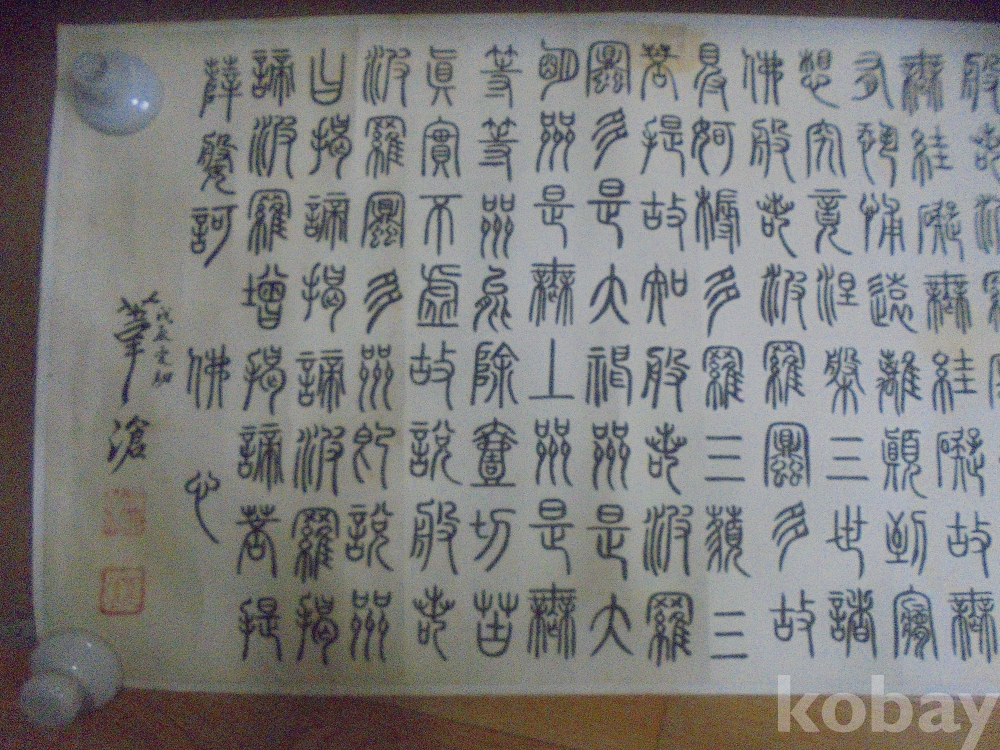 般若波羅
無罣礙無罣礙故無
有恐怖遠離顛倒夢
想究竟涅槃三世諸
佛般若波羅蜜多故
得阿耨多羅三藐三
菩提故知般若波羅
蜜多是大神咒是大
明咒是無上咒是無
等等咒能除壹切苦
真實不虛故說般若
波羅蜜多咒即說咒
曰揭諦揭諦波羅揭
諦波羅增揭諦菩提
薩婆訶 佛心
戊辰
滄
kobay